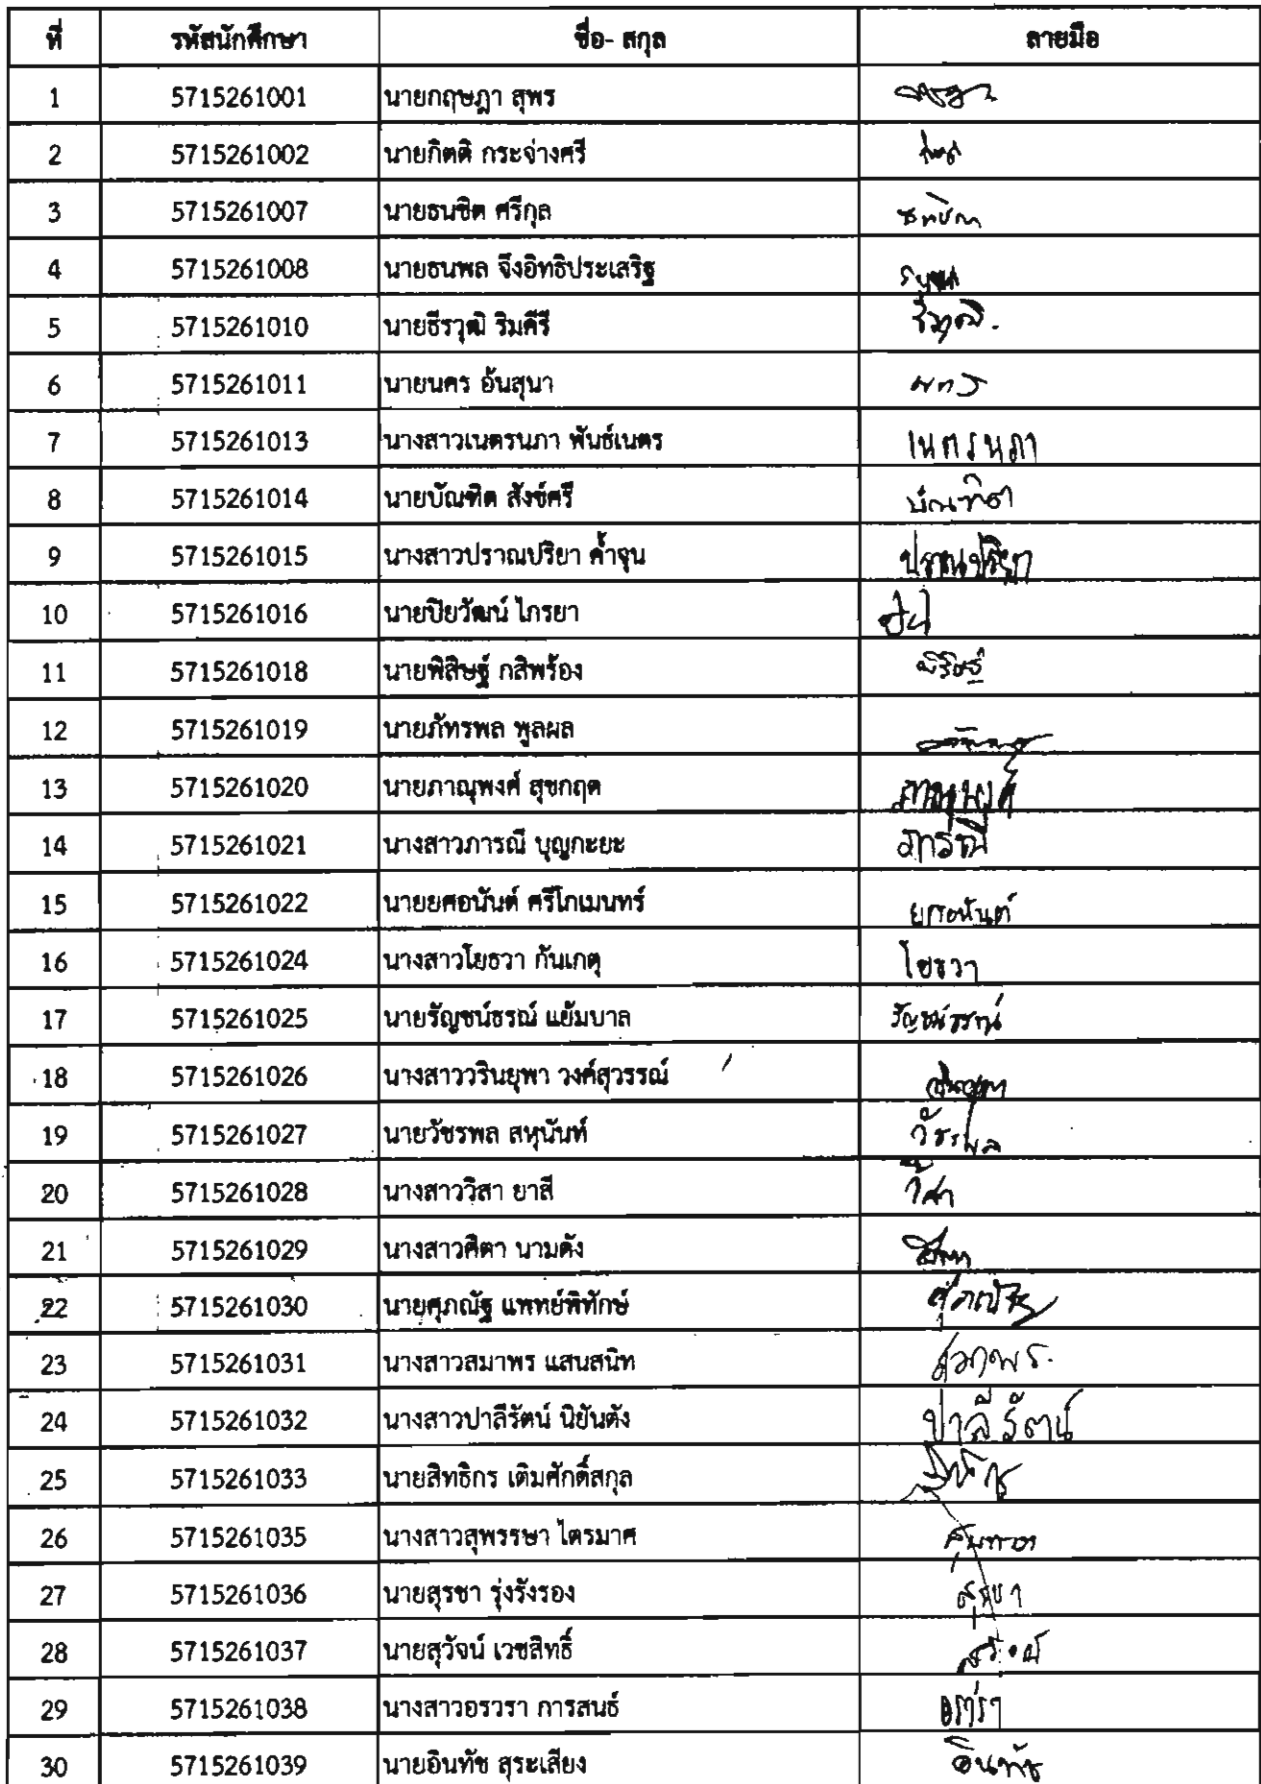 ที่ รหัสนักศึกษา ชื่อ- สกุล ลายมือ
1 5715261001 นายกฤษฎา สุพร
2 5715261002 นายกิตติ กระจ่างศรี
3 5715261007 นายธนชิต ศรีกุล
4 5715261008 นายธนพล จึงอิทธิประเสริฐ
5 5715261010 นายธีรวุฒิ ริมคีรี
6 5715261011 นายนคร อ้นสุนา
7 5715261013 นางสาวเนตรนภา พันธ์เนตร เนตรนภา
8 5715261014 นายบัณฑิต สังข์ศรี บัณฑิต
9 5715261015 นางสาวปราณปริยา ค้ำจุน ปราณปริยา
10 5715261016 นายปิยวัฒน์ ไกรยา
11 5715261018 นายพิสิษฐ์ กสิพร้อง
12 5715261019 นายภัทรพล พูลผล
13 5715261020 นายภาณุพงศ์ สุขกฤต ภาณุพงศ์
14 5715261021 นางสาวภารณี บุญกะยะ ภารณี
15 5715261022 นายยศอนันต์ ศรีโกเมนทร์ ยศอนันต์
16 5715261024 นางสาวโยธวา กันเกตุ โยธวา
17 5715261025 นายรัญชน์ธรณ์ แย้มบาล รัญชน์ธรณ์
18 5715261026 นางสาววรินยุพา วงค์สุวรรณ์
19 5715261027 นายวัชรพล สหุนันท์ วัชรพล
20 5715261028 นางสาววิสา ยาสี วิสา
21 5715261029 นางสาวศิตา นามดัง
22 5715261030 นายศุภณัฐ แพทย์พิทักษ์ ศุภณัฐ
23 5715261031 นางสาวสมาพร แสนสนิท สมาพร.
24 5715261032 นางสาวปาลีรัตน์ นิยันตัง ปาลีรัตน์
25 5715261033 นายสิทธิกร เติมศักดิ์สกุล
26 5715261035 นางสาวสุพรรษา ไตรมาศ
27 5715261036 นายสุรชา รุ่งรังรอง สุรชา
28 5715261037 นายสุวัจน์ เวชสิทธิ์
29 5715261038 นางสาวอรวรา การสนธ์ อรวรา
30 5715261039 นายอินทัช สุระเสียง อินทัช